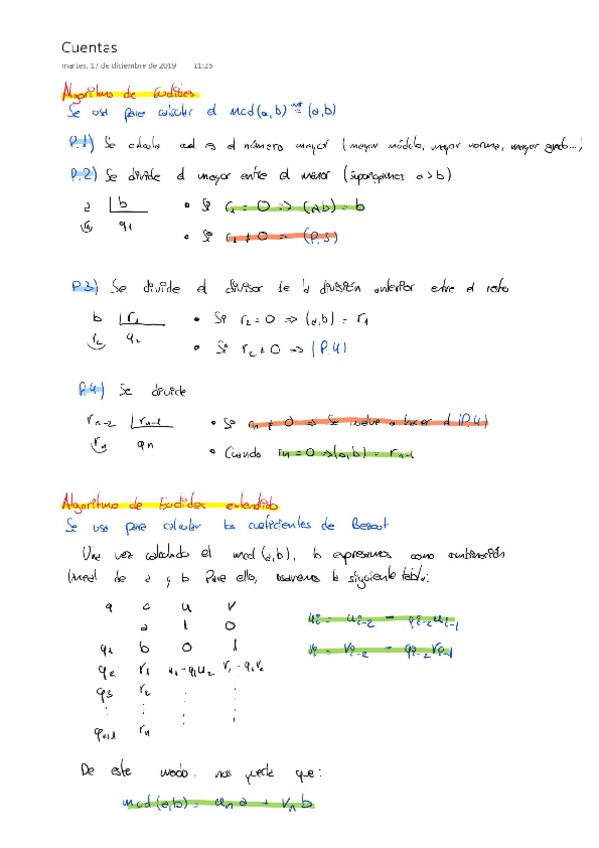 Cuentas
martes, 17 de diciembre de 2019 11:25
Algoritmo de Euclides
Se usa para calcular el mcd(a,b) not = (a,b)
P.1) Se calcula cual es el número mayor (mayor módulo, mayor norma, mayor grado...)
P.2) Se divide el mayor entre el menor (supongamos a>b)
a | b
r₁ q₁
• Si r₁ = 0 => (a,b) = b
• Si r₁ ≠ 0 => (P.3)
P.3) Se divide el divisor de la división anterior entre el resto
b | r₁
r₂ q₂
• Si r₂ = 0 => (a,b) = r₁
• Si r₂ ≠ 0 => (P.4)
P.4) Se divide
rₙ₋₂ | rₙ₋₁
rₙ qₙ
• Si rₙ ≠ 0 => Se vuelve a hacer el (P.4)
• Cuando rₙ = 0 => (a,b) = rₙ₋₁
Algoritmo de Euclides extendido
Se usa para calcular los coeficientes de Bezout
Una vez calculado el mcd(a,b), lo expresamos como combinación
lineal de a y b. Para ello, usaremos la siguiente tabla:
q c u v
a 1 0
q₁ b 0 1
q₂ r₁ u₁ - q₁u₂ v₁ - q₁v₂
q₃ r₂ : :
: : : :
qₙ₊₁ rₙ
uᵢ = uᵢ₋₂ - qᵢ₋₂uᵢ₋₁
vᵢ = vᵢ₋₂ - qᵢ₋₂vᵢ₋₁
De este modo, nos queda que:
mcd(a,b) = uₙ a + vₙ b